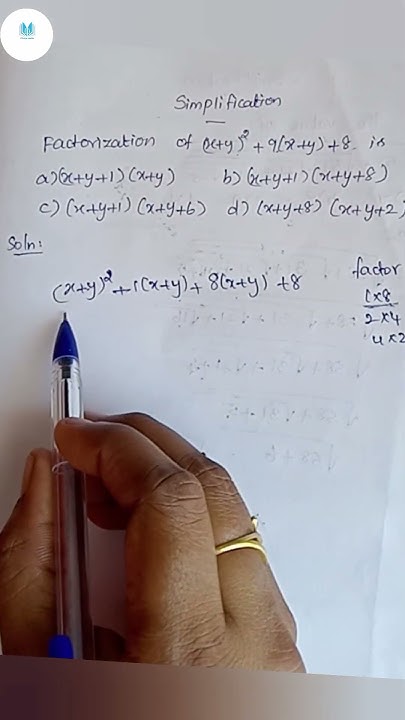 Simplification
Factorization of (x+y)² + 9(x+y) + 8 is
a) (x+y+1) (x+y) b) (x+y+1) (x+y+8)
c) (x+y+1) (x+y+6) d) (x+y+8) (x+y+2)
Soln:
(x+y)² + 1(x+y) + 8(x+y) + 8
factor
1×8
2×4
4×2